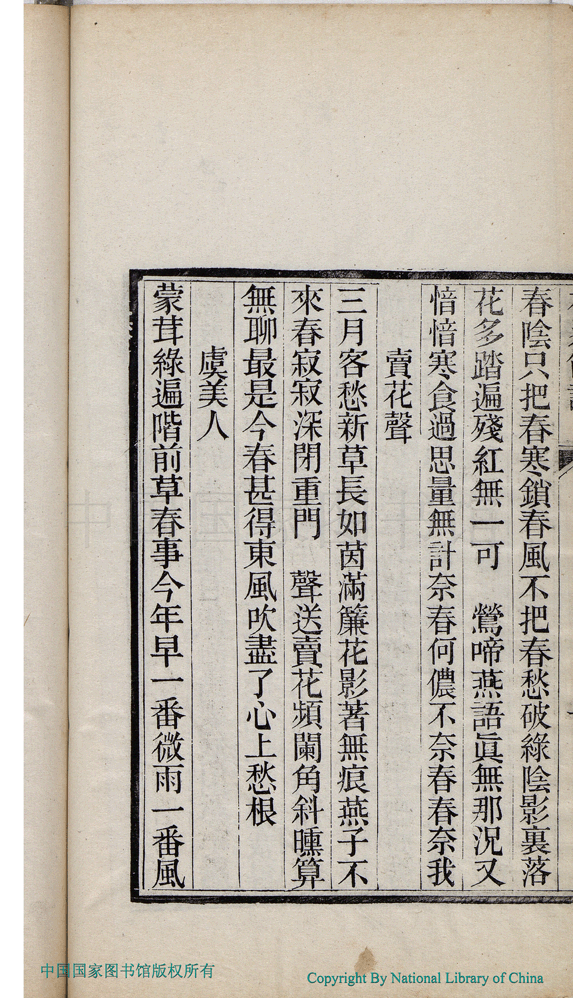 春陰只把春寒鎖春風不把春愁破綠陰影裏落
花多踏遍殘紅無一可　鶯啼燕語眞無那況又
愔愔寒食過思量無計奈春何儂不奈春春奈我
賣花聲
三月客愁新草長如茵滿簾花影著無痕燕子不
來春寂寂深閉重門　聲送賣花頻闌角斜曛算
無聊最是今春甚得東風吹盡了心上愁根
虞美人
蒙茸綠遍階前草春事今年早一番微雨一番風
中国国家图书馆版权所有
Copyright By National Library of China